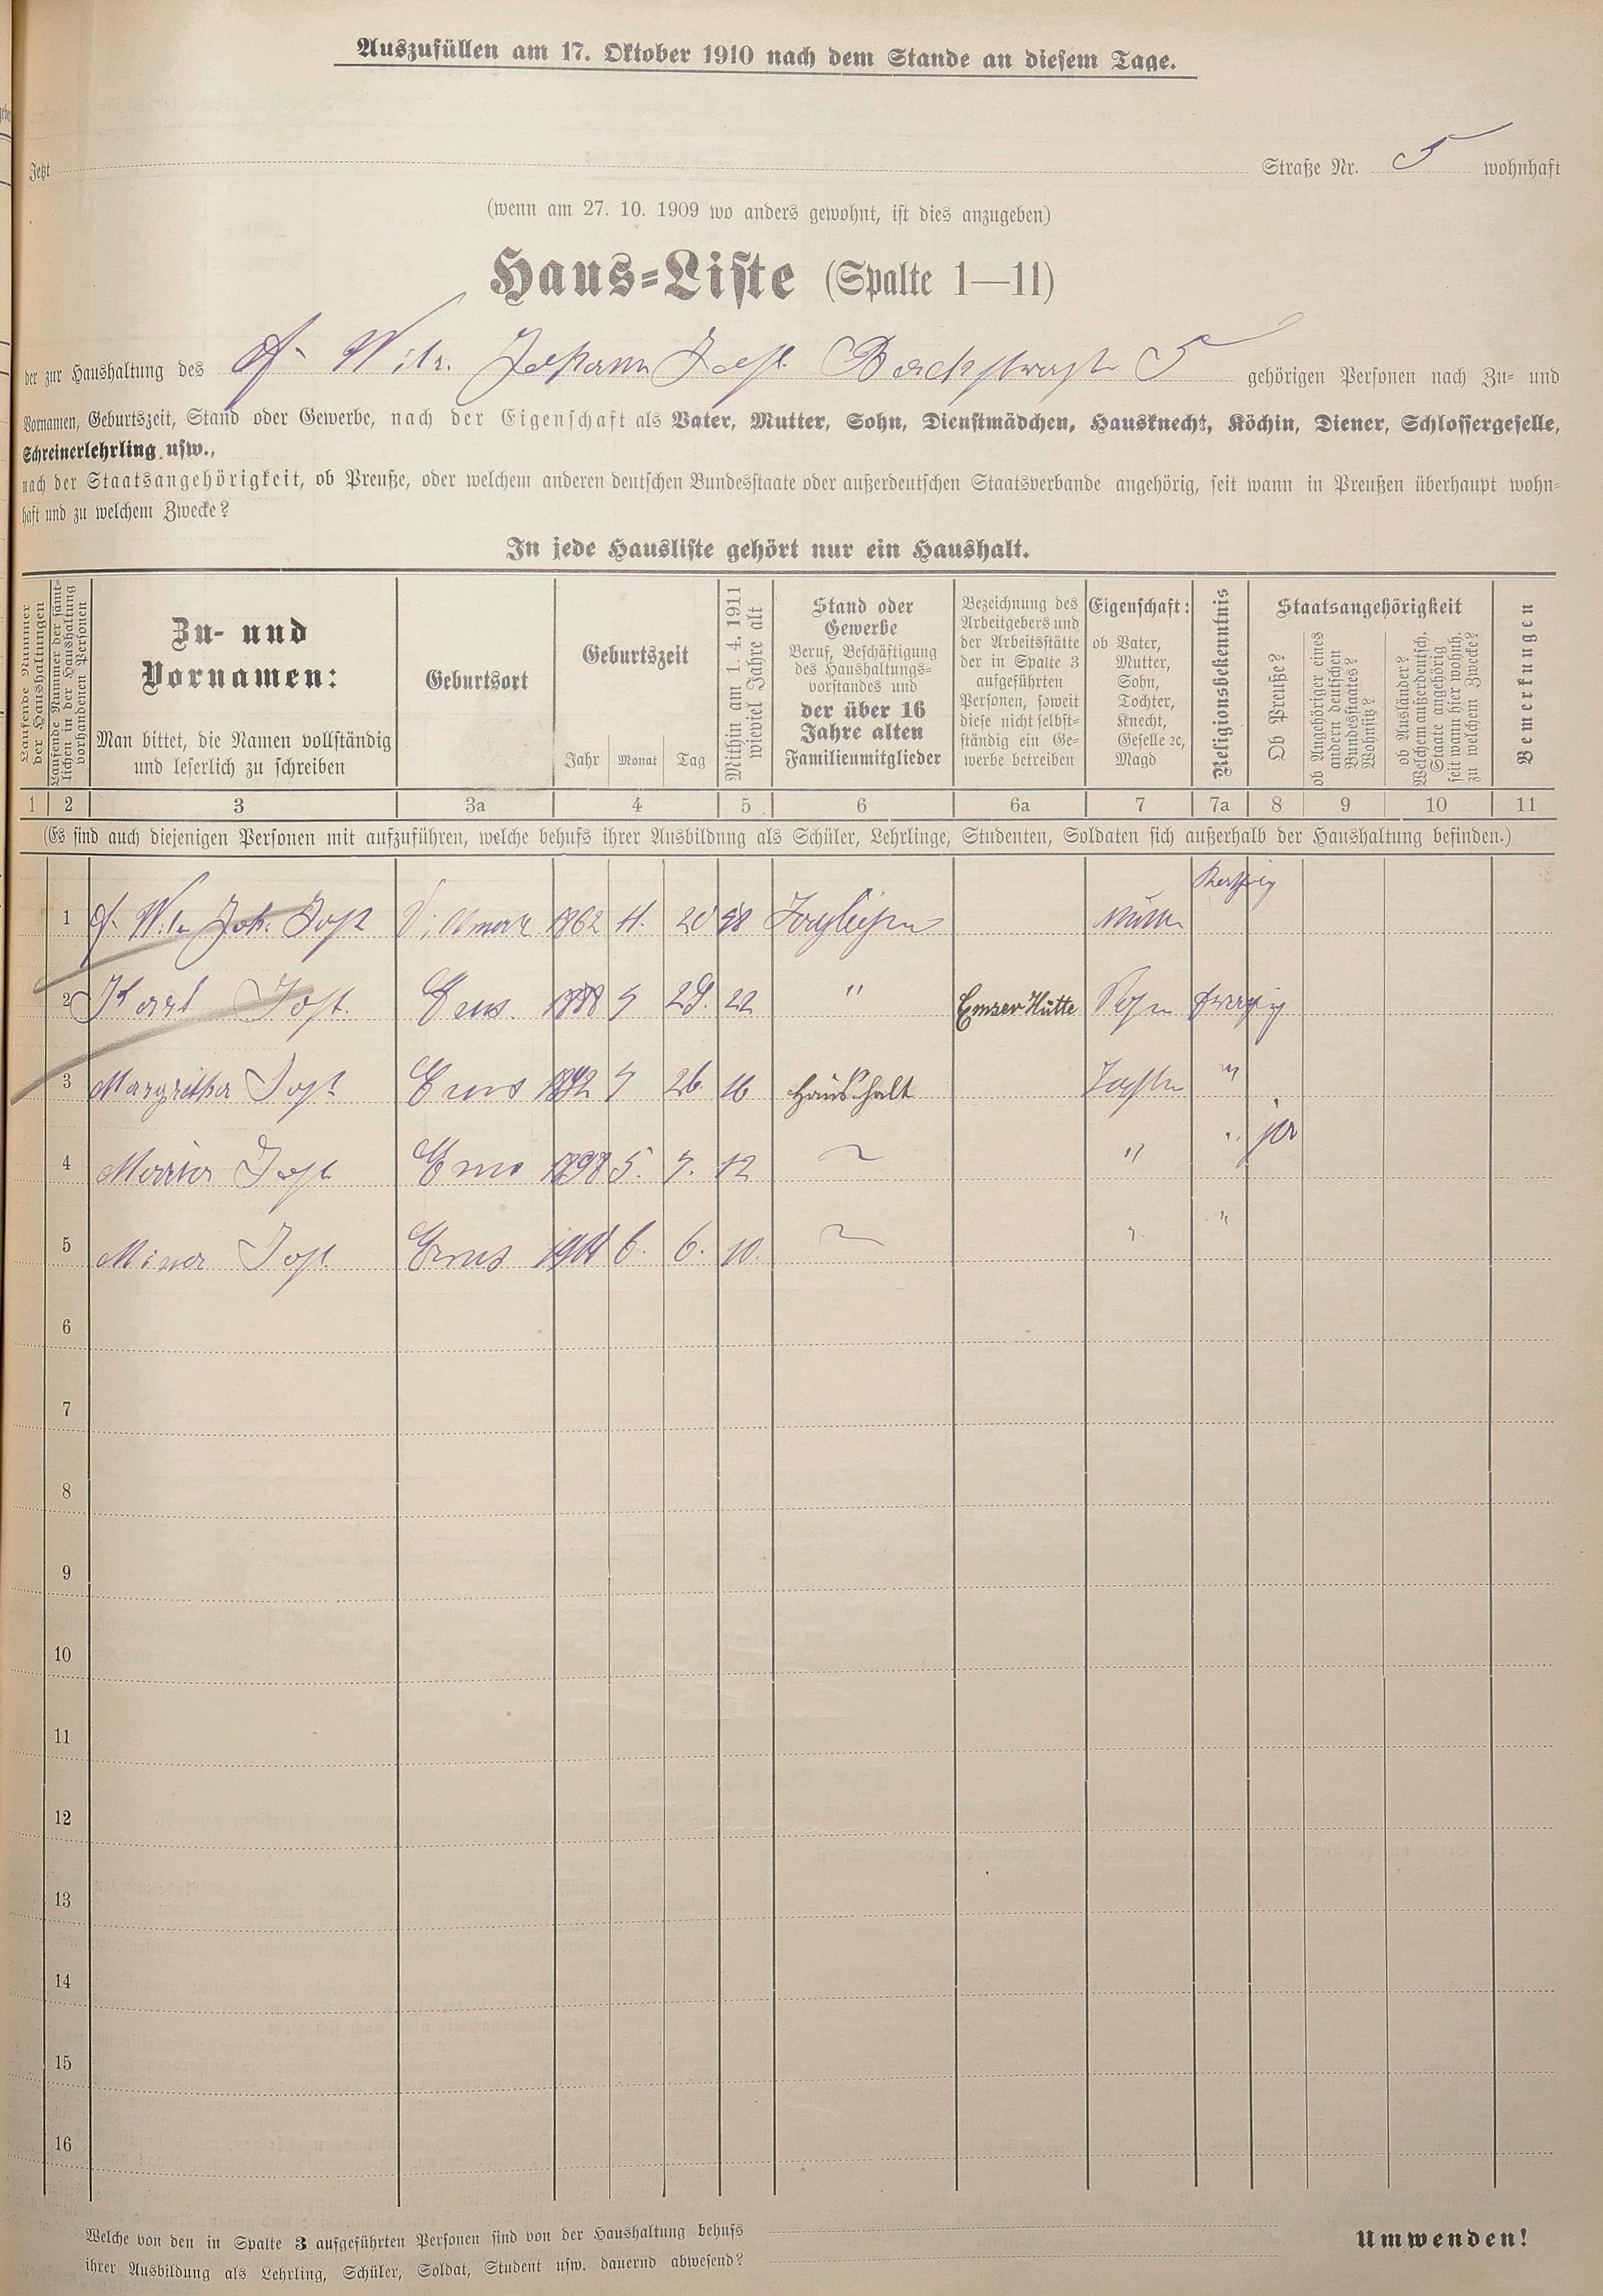 Auszufüllen am 17. Oktober 1910 nach dem Stande an diesem Tage.
Jetzt Straße Nr. 5 wohnhaft
(wenn am 27. 10. 1909 wo anders gewohnt, ist dies anzugeben)
Haus-Liste (Spalte 1—11)
der zur Haushaltung des Fr. Witw. Johann Jost Bachstraße 5 gehörigen Personen nach Zu- und
Vornamen, Geburtszeit, Stand oder Gewerbe, nach der Eigenschaft als Vater, Mutter, Sohn, Dienstmädchen, Hausknecht, Köchin, Diener, Schlossergeselle,
Schreinerlehrling usw.,
nach der Staatsangehörigkeit, ob Preuße, oder welchem anderen deutschen Bundesstaate oder außerdeutschen Staatsverbande angehörig, seit wann in Preußen überhaupt wohn-
haft und zu welchem Zwecke?
In jede Hausliste gehört nur ein Haushalt.
Laufende Nummer
der Haushaltungen
Laufende Nummer der sämt-
lichen in der Haushaltung
vorhandenen Personen
Zu- und
Vornamen:
Man bittet, die Namen vollständig
und leserlich zu schreiben
Geburtsort
Geburtszeit
Jahr Monat Tag
Mithin am 1. 4. 1911
wieviel Jahre alt
Stand oder
Gewerbe
Beruf, Beschäftigung
des Haushaltungs-
vorstandes und
der über 16
Jahre alten
Familienmitglieder
Bezeichnung des
Arbeitgebers und
der Arbeitsstätte
der in Spalte 3
aufgeführten
Personen, soweit
diese nicht selbst-
ständig ein Ge-
werbe betreiben
Eigenschaft:
ob Vater,
Mutter,
Sohn,
Tochter,
Knecht,
Geselle ꝛc,
Magd
Religionsbekenntnis
Staatsangehörigkeit
Ob Preuße?
ob Angehöriger eines
andern deutschen
Bundesstaates?
Wohnsitz?
ob Ausländer?
Welchem außerdeutsch.
Staate angehörig
seit wann hier wohnh.
zu welchem Zwecke?
Bemerkungen
1 2 3 3a 4 5 6 6a 7 7a 8 9 10 11
(Es sind auch diejenigen Personen mit aufzuführen, welche behufs ihrer Ausbildung als Schüler, Lehrlinge, Studenten, Soldaten sich außerhalb der Haushaltung befinden.)
1 Fr. Witw. Joh. Jost 1862 20 48 Mutter
2 Karl Jost. Ems. 1888 29. 22 " Emser Hütte Sohn
3 Margretha Jost Ems 26. Haushalt Tochter "
4 Maria Jost Ems 1898 5. 12 " " ja
5 Mina Jost Ems 6. 6. 10. " "
6
7
8
9
10
11
12
13
14
15
16
Welche von den in Spalte 3 aufgeführten Personen sind von der Haushaltung behufs
ihrer Ausbildung als Lehrling, Schüler, Soldat, Student usw. dauernd abwesend?
Umwenden!